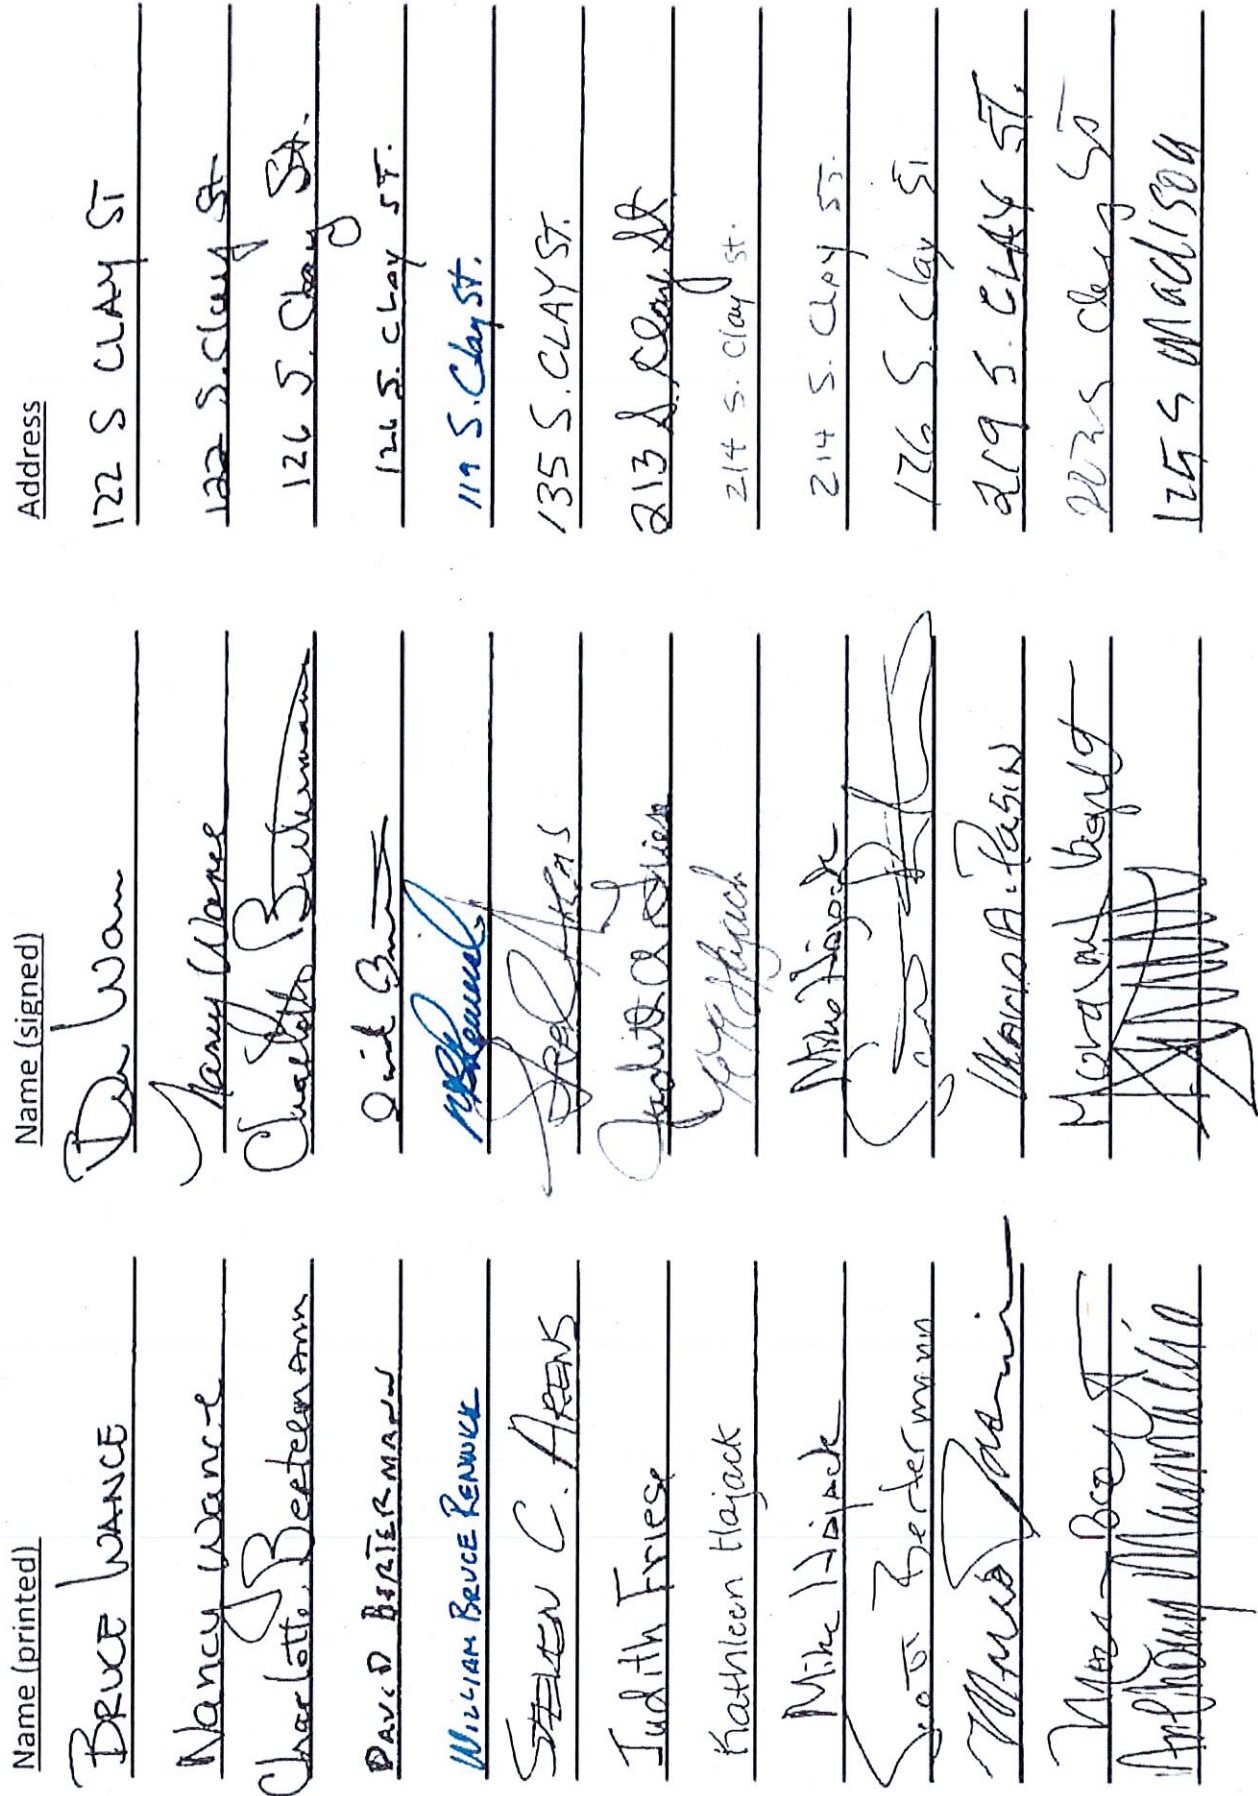 Name (printed) Name (signed) Address
BRUCE WANCE 122 S CLAY ST
Nancy Wance Nancy Wance 122 S. Clay St
Charlotte Berterman Charlotte Berterman 126 S. Clay St.
DAVID BERTERMANN 126 S. CLAY ST.
WILLIAM BRUCE RENWICK 119 S. Clay St.
STEVEN C. ARENS 135 S. CLAY ST.
Judith Friese Judith Friese 213 S. Clay St
Kathleen Hajack 214 S. Clay St.
Mike Hajack Mike Hajack 214 S. Clay ST.
Scott Bertermann 126 S. Clay St.
Mario A. Pasin 219 S. CLAY ST.
Clay ST
Anthony 125 S Madison